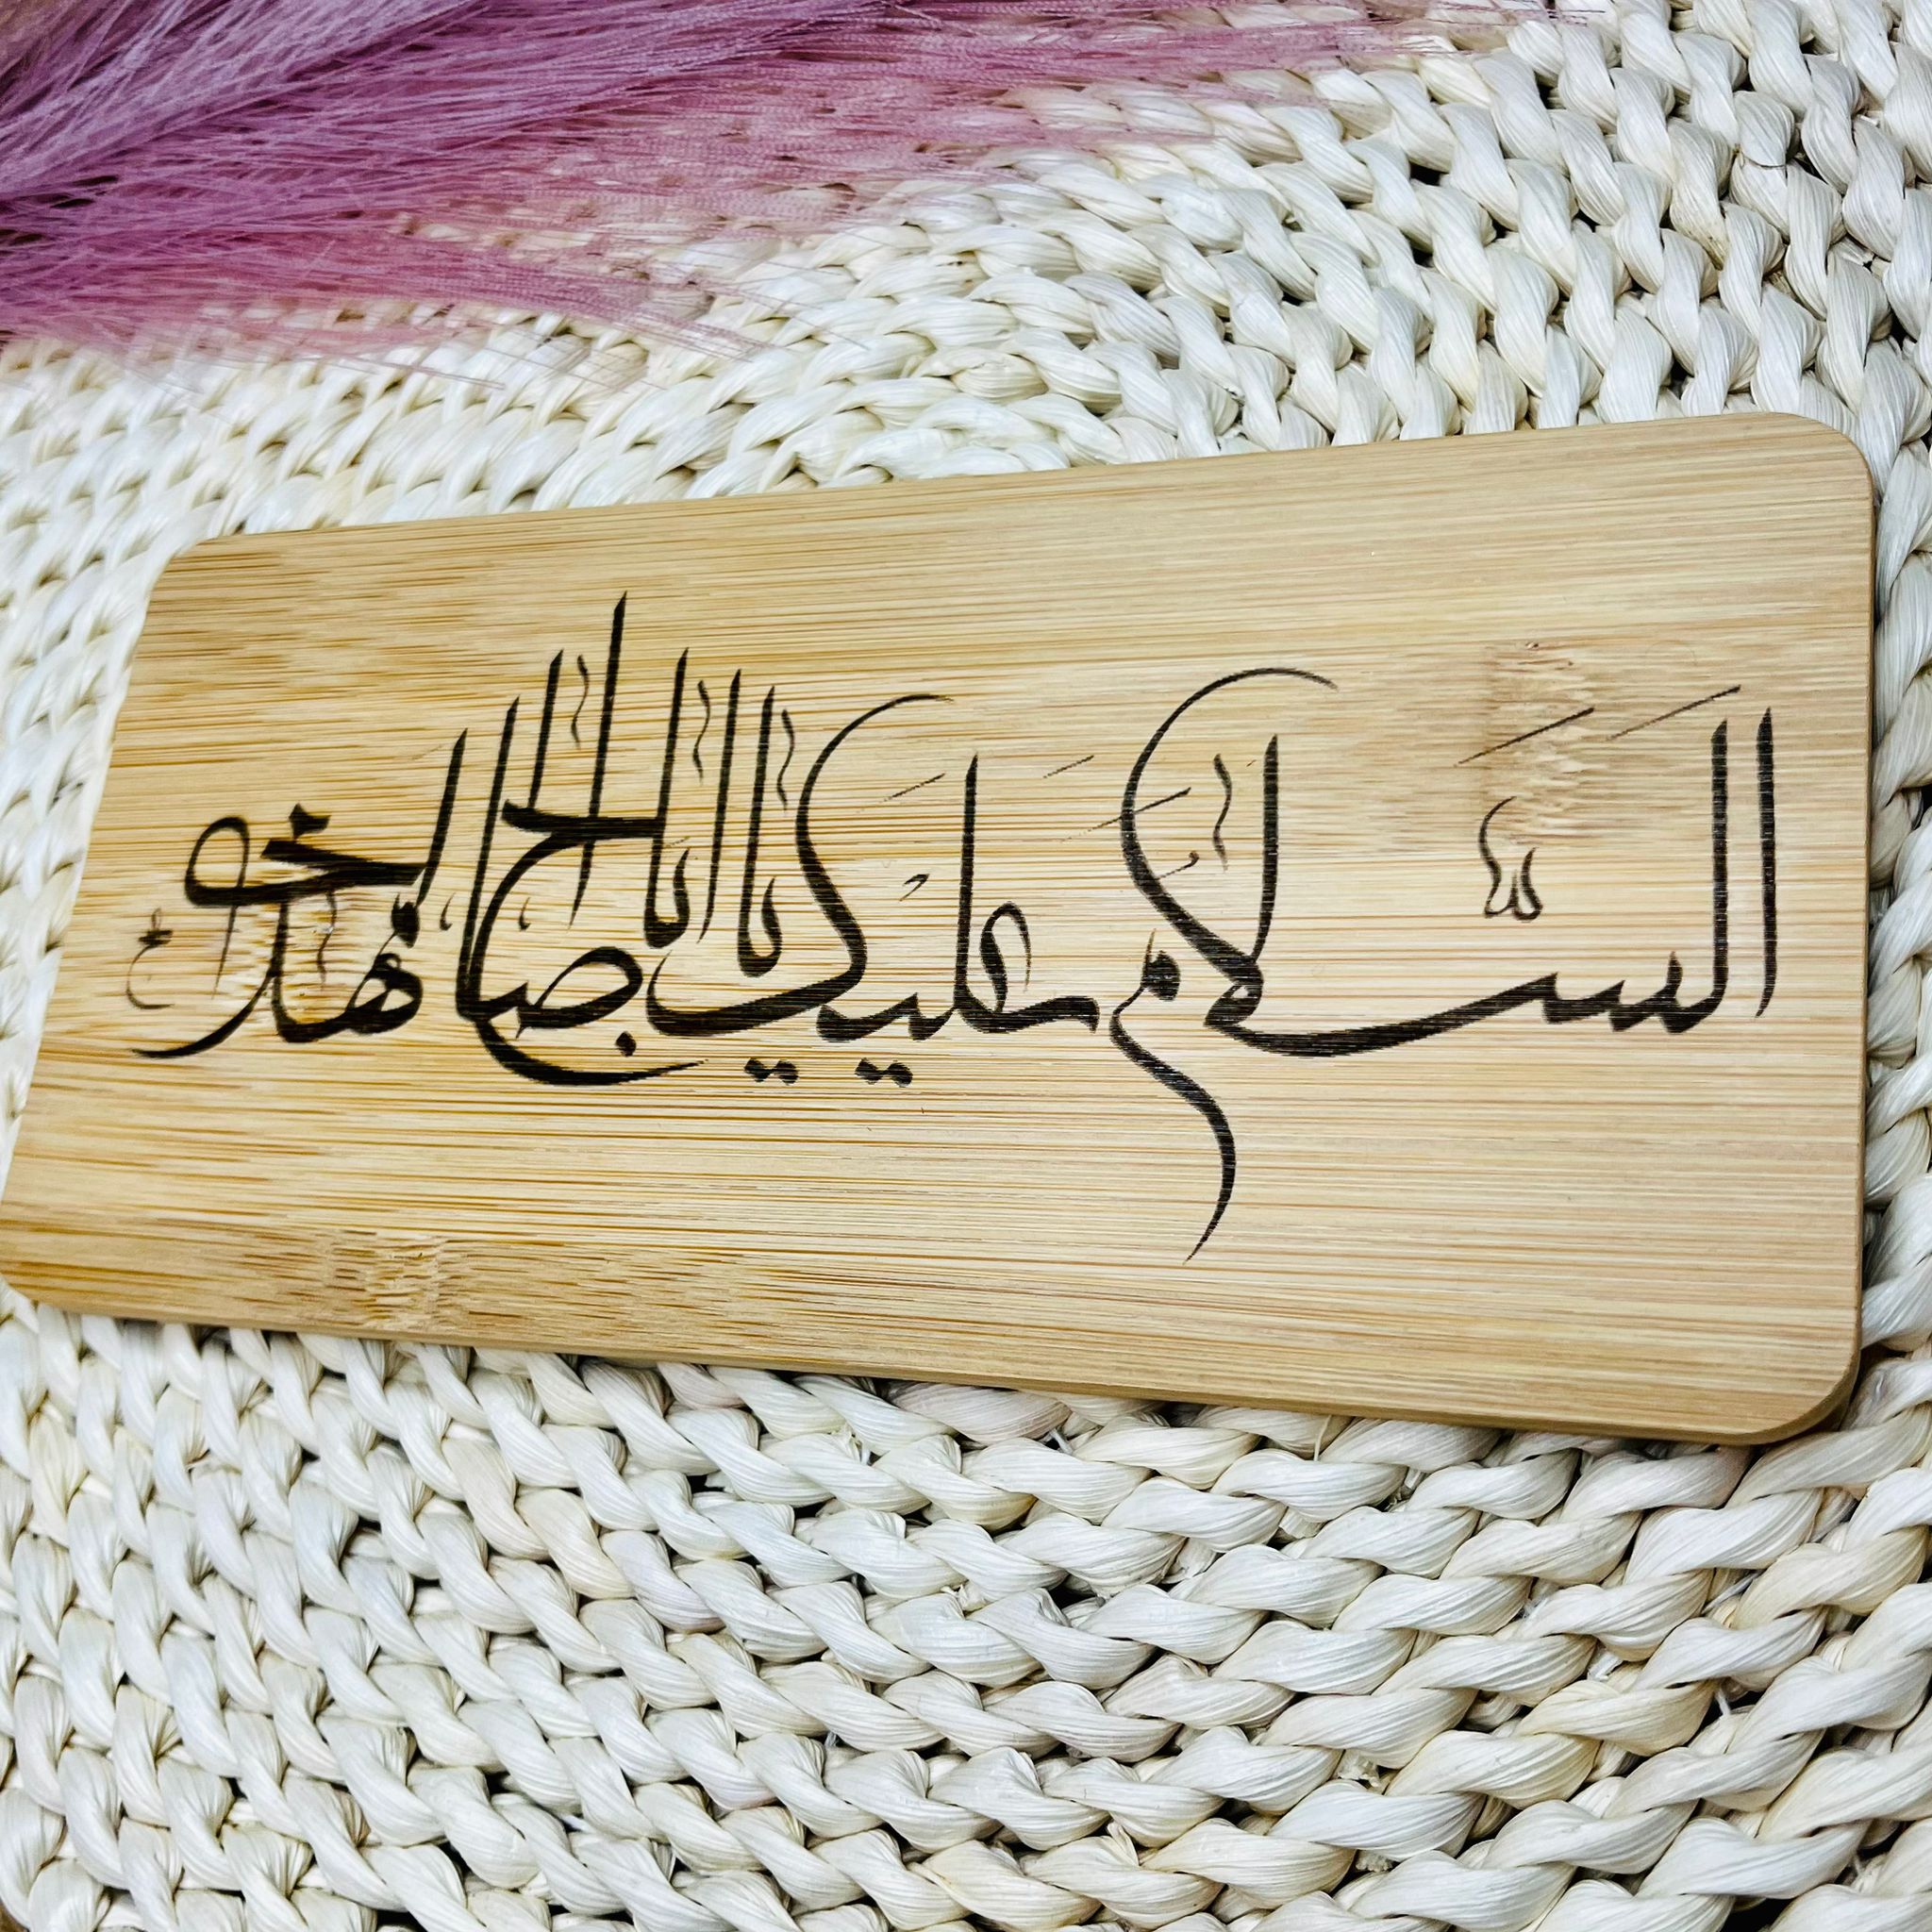 السلام عليك يا ابا صالح المهدي عج